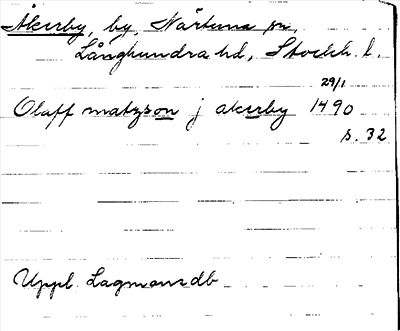 Åkerby, by, Närtuna sn,
Långhundra hd, Stockh. l.
29/1
Olaff matzson j akerby 1490
s. 32
Uppl. Lagmansdb